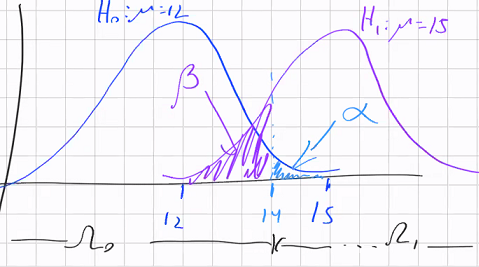 H₀: μ=12
H₁: μ=15
β
α
12 14 15
Ω₀ ... Ω₁